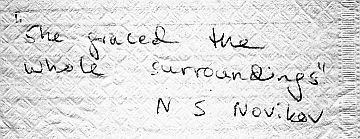 "She graced the
whole surroundings"
N S Novikov